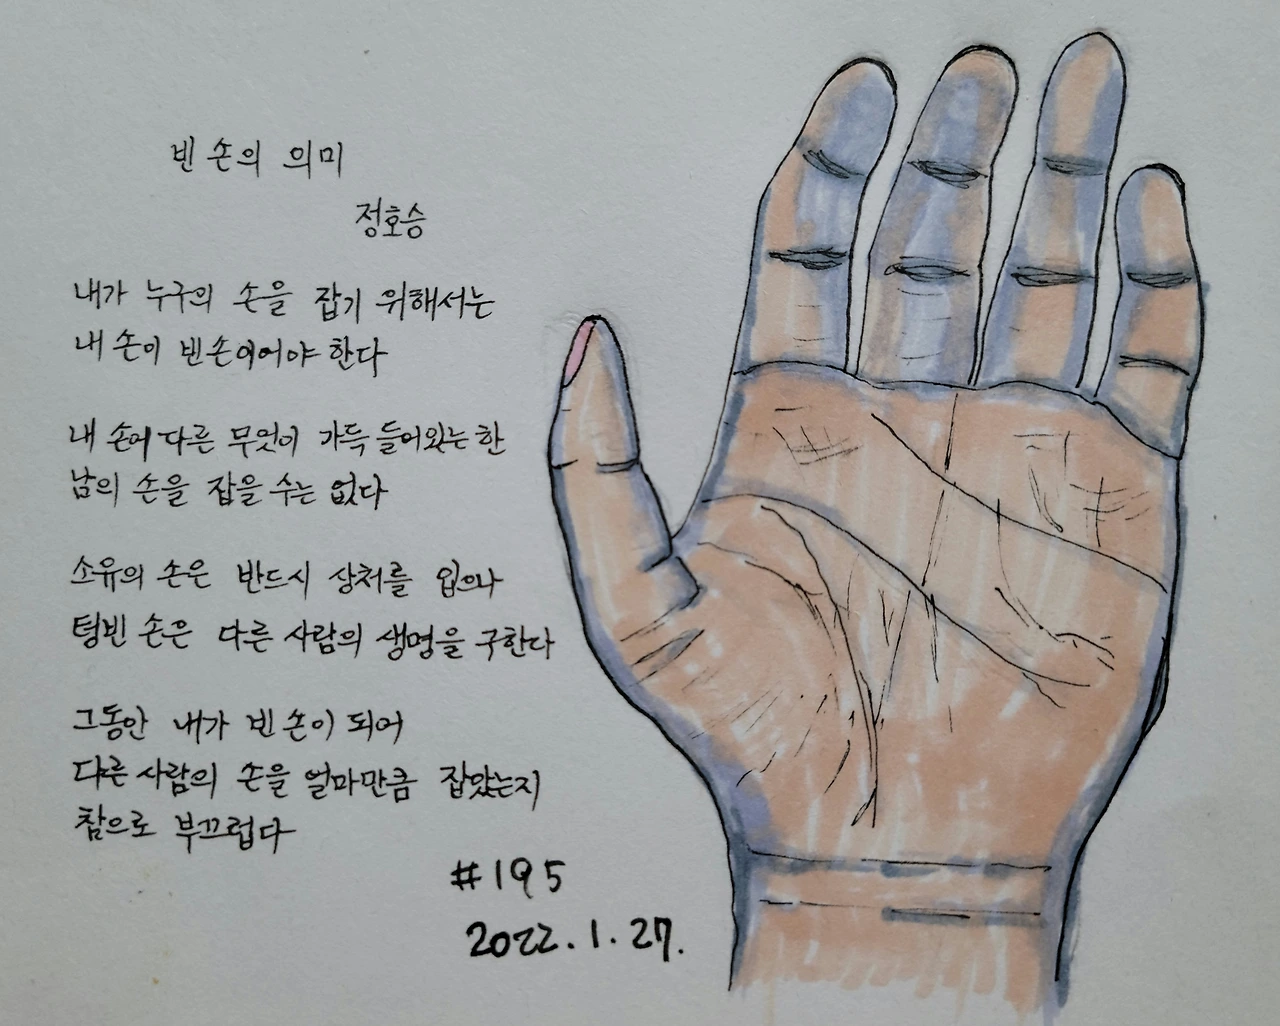 빈 손의 의미
정호승
내가 누구의 손을 잡기 위해서는
내 손이 빈손이어야 한다
내 손에 다른 무엇이 가득 들어있는 한
남의 손을 잡을 수는 없다
소유의 손은 반드시 상처를 입으나
텅빈 손은 다른 사람의 생명을 구한다
그동안 내가 빈 손이 되어
다른 사람의 손을 얼마만큼 잡았는지
참으로 부끄럽다
#195
2022.1.27.